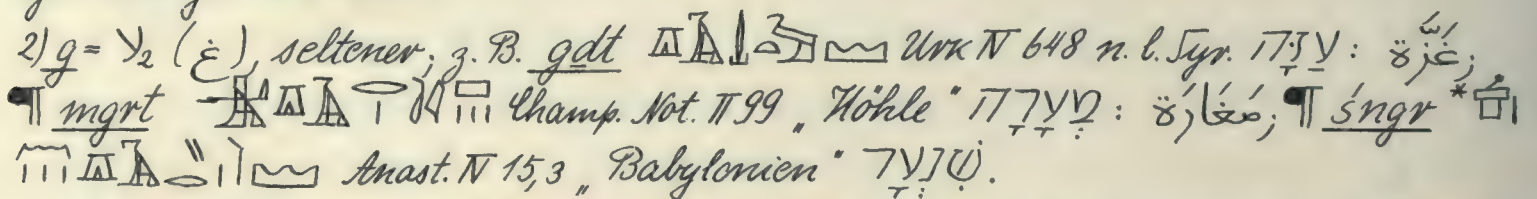 2) g = ע₂ (غ), seltener; z. B. gdt Urk IV 648 n. l. Syr. עַזָּה : غَزَّة;
¶ mgrt Champ. Not. II 99 „Höhle“ מְעָרָה : مَغَارَة; ¶ śngr *
Anast. IV 15,3 „Babylonien“ שִׁנְעָר.